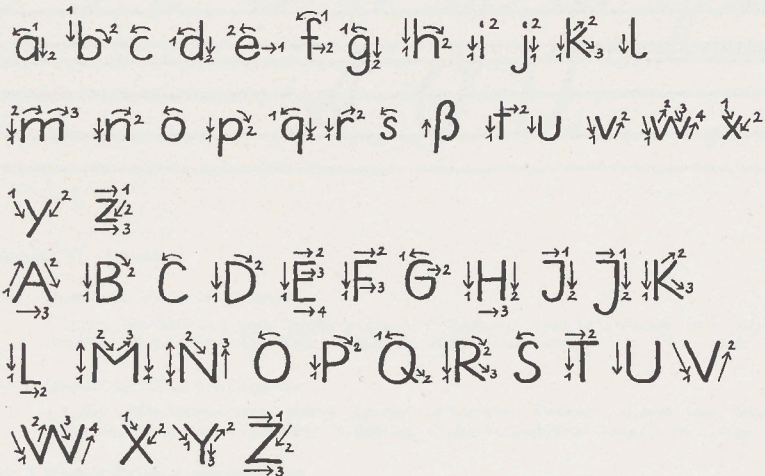 a b c d e f g h i j k l
m n o p q r s ß t u v w x
y z
A B C D E F G H J J K
L M N O P Q R S T U V
W X Y Z